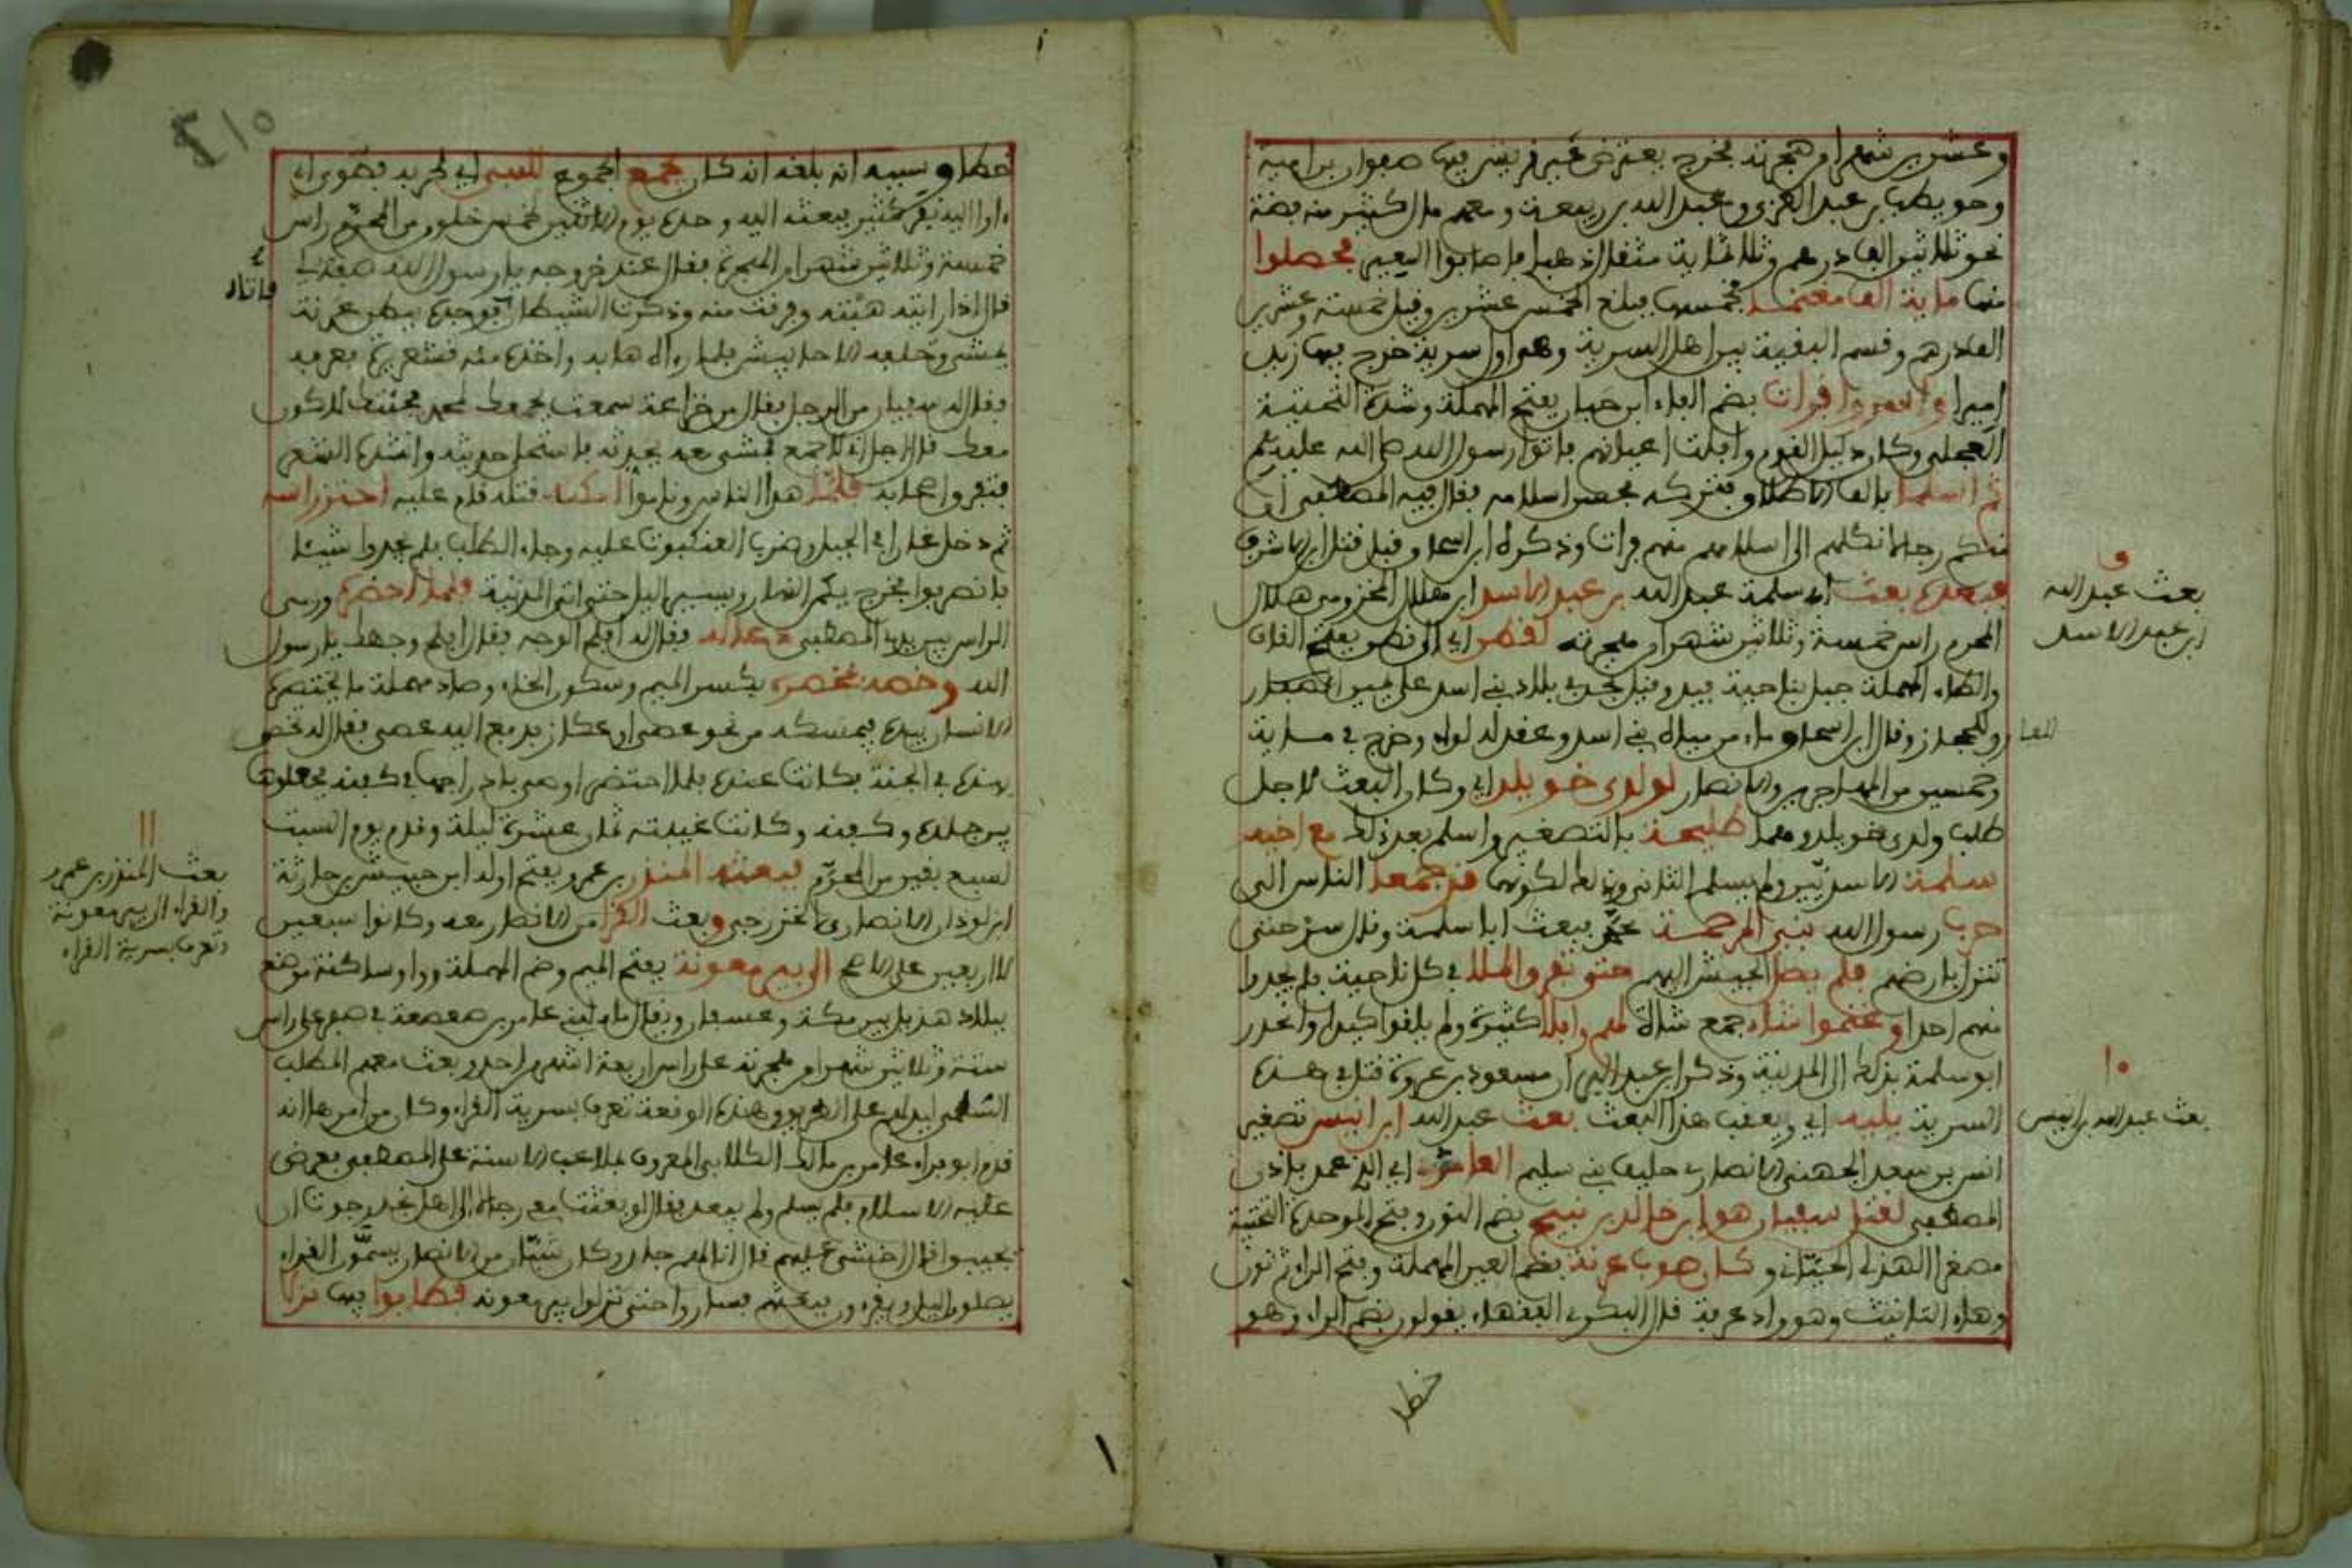 وعشرين شهرا من هجرته فخرج يعترض عير قريش فيها صفوان بن امية
وحويطب بن عبد العزى وعبد الله بن ربيعة ومعهم مال كثير منه فضة
نحو ثلاثين الف درهم وثلاثماية مثقال ذهبا فاصابوا العير فحصلوا
منها ماية الف مغنما فخمسها فبلغ الخمس عشرين وقيل خمسة وعشرين
الف درهم وقسم البقية بين اهل السرية وهي اول سرية خرج فيها زيد
اميرا واسروا فرات بضم الفاء ابن حيان بفتح المهملة وشدة التحتية
العجلي وكان دليل القوم وافلت اعيانهم فاتوا رسول الله صلى الله عليه وسلم
ثم اسلما بالف الاطلاق فتركه فحسن اسلامه فقال فيه المصطفى ان
منكم رجالا نكلهم الى اسلامهم منهم فرات وذكره ابن اسحاق قبل قتل ابن الاشرف
فبعده بعث ابي سلمة عبد الله بن عبد الاسد ابن هلال المخزومي هلال
المحرم راس خمسة وثلاثين شهرا من هجرته لقطن اي الى قطن بفتح القاف
والطاء المهملة جبل بناحية فيد وقيل بنجد في بلاد بني اسد على يمين
وقال ابن اسحاق ماء من مياه بني اسد وعقد له لواء وخرج في ماية
وخمسين من المهاجرين والانصار لولدي خويلد اي وكان البعث لاجل
طلب ولدي خويلد وهما طليحة بالتصغير واسلم بعد ذلك مع اخيه
سلمة الاسديين ولم يسلم الثاني وذلك لكونهما قد جمعا الناس الى
حرب رسول الله نبي المرحمة فبعث ابا سلمة وقال سر حتى
تنزل بارضهم فلم يصل الجيش اليهم حتى تفرق الملا في كل ناحية فلم يجدوا
منهم احدا وغنموا شاء جمع شاة لهم وابلا كثيرة ولم يلقوا كيدا وانحدر
ابو سلمة بذلك الى المدينة وذكر ابن عبد البر ان مسعود بن عروة قتل في هذه
السرية يليه اي ويعقب هذا البعث بعث عبد الله ابن انيس تصغير
انس بن سعد الجهني الانصاري حليف بني سليم العامد اي الذي عمد باذن
المصطفى لقتل سفيان هو ابن خالد بن نبيح بضم النون وفتح الموحدة التحتية
مصغرا الهذلي اللحياني وكان صوب عرنة بضم العين المهملة وفتح الراء ثم نون
وهاء التانيث وهو واد عرفة قال البكري الفقهاء يقولون بضم الراء وهو
خطا
بعث عبد الله
ابن عبد الاسد
١٠
بعث عبد الله بن انيس
٤١٥
خطا وسببه انه بلغه انه كان يجمع الجموع للنبي اي لحربه فضوى اي
اوا اليه نفر كثير فبعثه اليه وحده يوم الاثنين لخمس خلون من المحرم راس
خمسة وثلاثين شهرا من الهجرة فقال عند خروجه يا رسول الله صفه لي
قال اذا رايته هبته وفرقت منه وذكرت الشيطان فوجده ببطن عرنة
يمشي وخلفه الاحابيش فلما راه هابه واخذه منه قشعريرة فعرفه
فقال له سفيان من الرجل فقال من خزاعة سمعت بجمعك لمحمد فجئتك لاكون
معك قال اجل اني لاجمع فمشى معه يحدثه فاستحلى حديثه وانشده الشعر
فتفرق اصحابه فلما هدا الناس وناموا امكنه قتله قام عليه احتز راسه
ثم دخل غارا في الجبل وضرب العنكبوت عليه وجاء الطلب فلم يجدوا شيئا
فانصرفوا فخرج يكمن النهار ويسير الليل حتى اتى المدينة فلما احضره ورمى
الراس بين يدي المصطفى دعا له فقال له افلح الوجه فقال افلح وجهك يا رسول
الله وخصه بمخصرة بكسر الميم وسكون الخاء وصاد مهملة ما يختصره
الانسان بيده فيمسكه من نحو عصى او عكاز يدفع اليه عصى فقال له تخصر
بهذه في الجنة فكانت عنده فلما احتضر اوصى بادراجها في كفنه فجعلوها
بين جلده وكفنه وكانت غيبته ثمان عشرة ليلة وقدم يوم السبت
لسبع بقين من المحرم فبعثه المنذر بن عمرو بفتح اوله ابن خنيس بن حارثة
ابن لوذان الانصاري الخزرجي وبعث القرا من الانصار معه وكانوا سبعين
لا اربعين على الاصح الى بير معونة بفتح الميم وضم المهملة وواو ساكنة موضع
ببلاد هذيل بين مكة وعسفان ويقال ماء لبني عامر بن صعصعة في صفر على راس
ستة وثلاثين شهرا من هجرته على راس اربعة اشهر من احد وبعث معهم المطلب
السلمي ليدلهم على الطريق وهذه الوقعة تعرف بسرية القراء وكان من امرها انه
قدم ابو براء عامر بن مالك الكلابي المعروف بملاعب الاسنة على المصطفى فعرض
عليه الاسلام فلم يسلم ولم يبعد فقال لو بعثت معي رجالا الى اهل نجد رجوت ان
يجيبوا قال اخشى عليهم قال انا لهم جار وكان شبان من الانصار يسمون القراء
يصلون بالليل ويقرءون فبعثهم فساروا حتى نزلوا بير معونة فطابوا بها نزلا
فاتاه
١١
بعث المنذر بن عمرو
والقراء الى بير معونة
وتعرف بسرية القراء